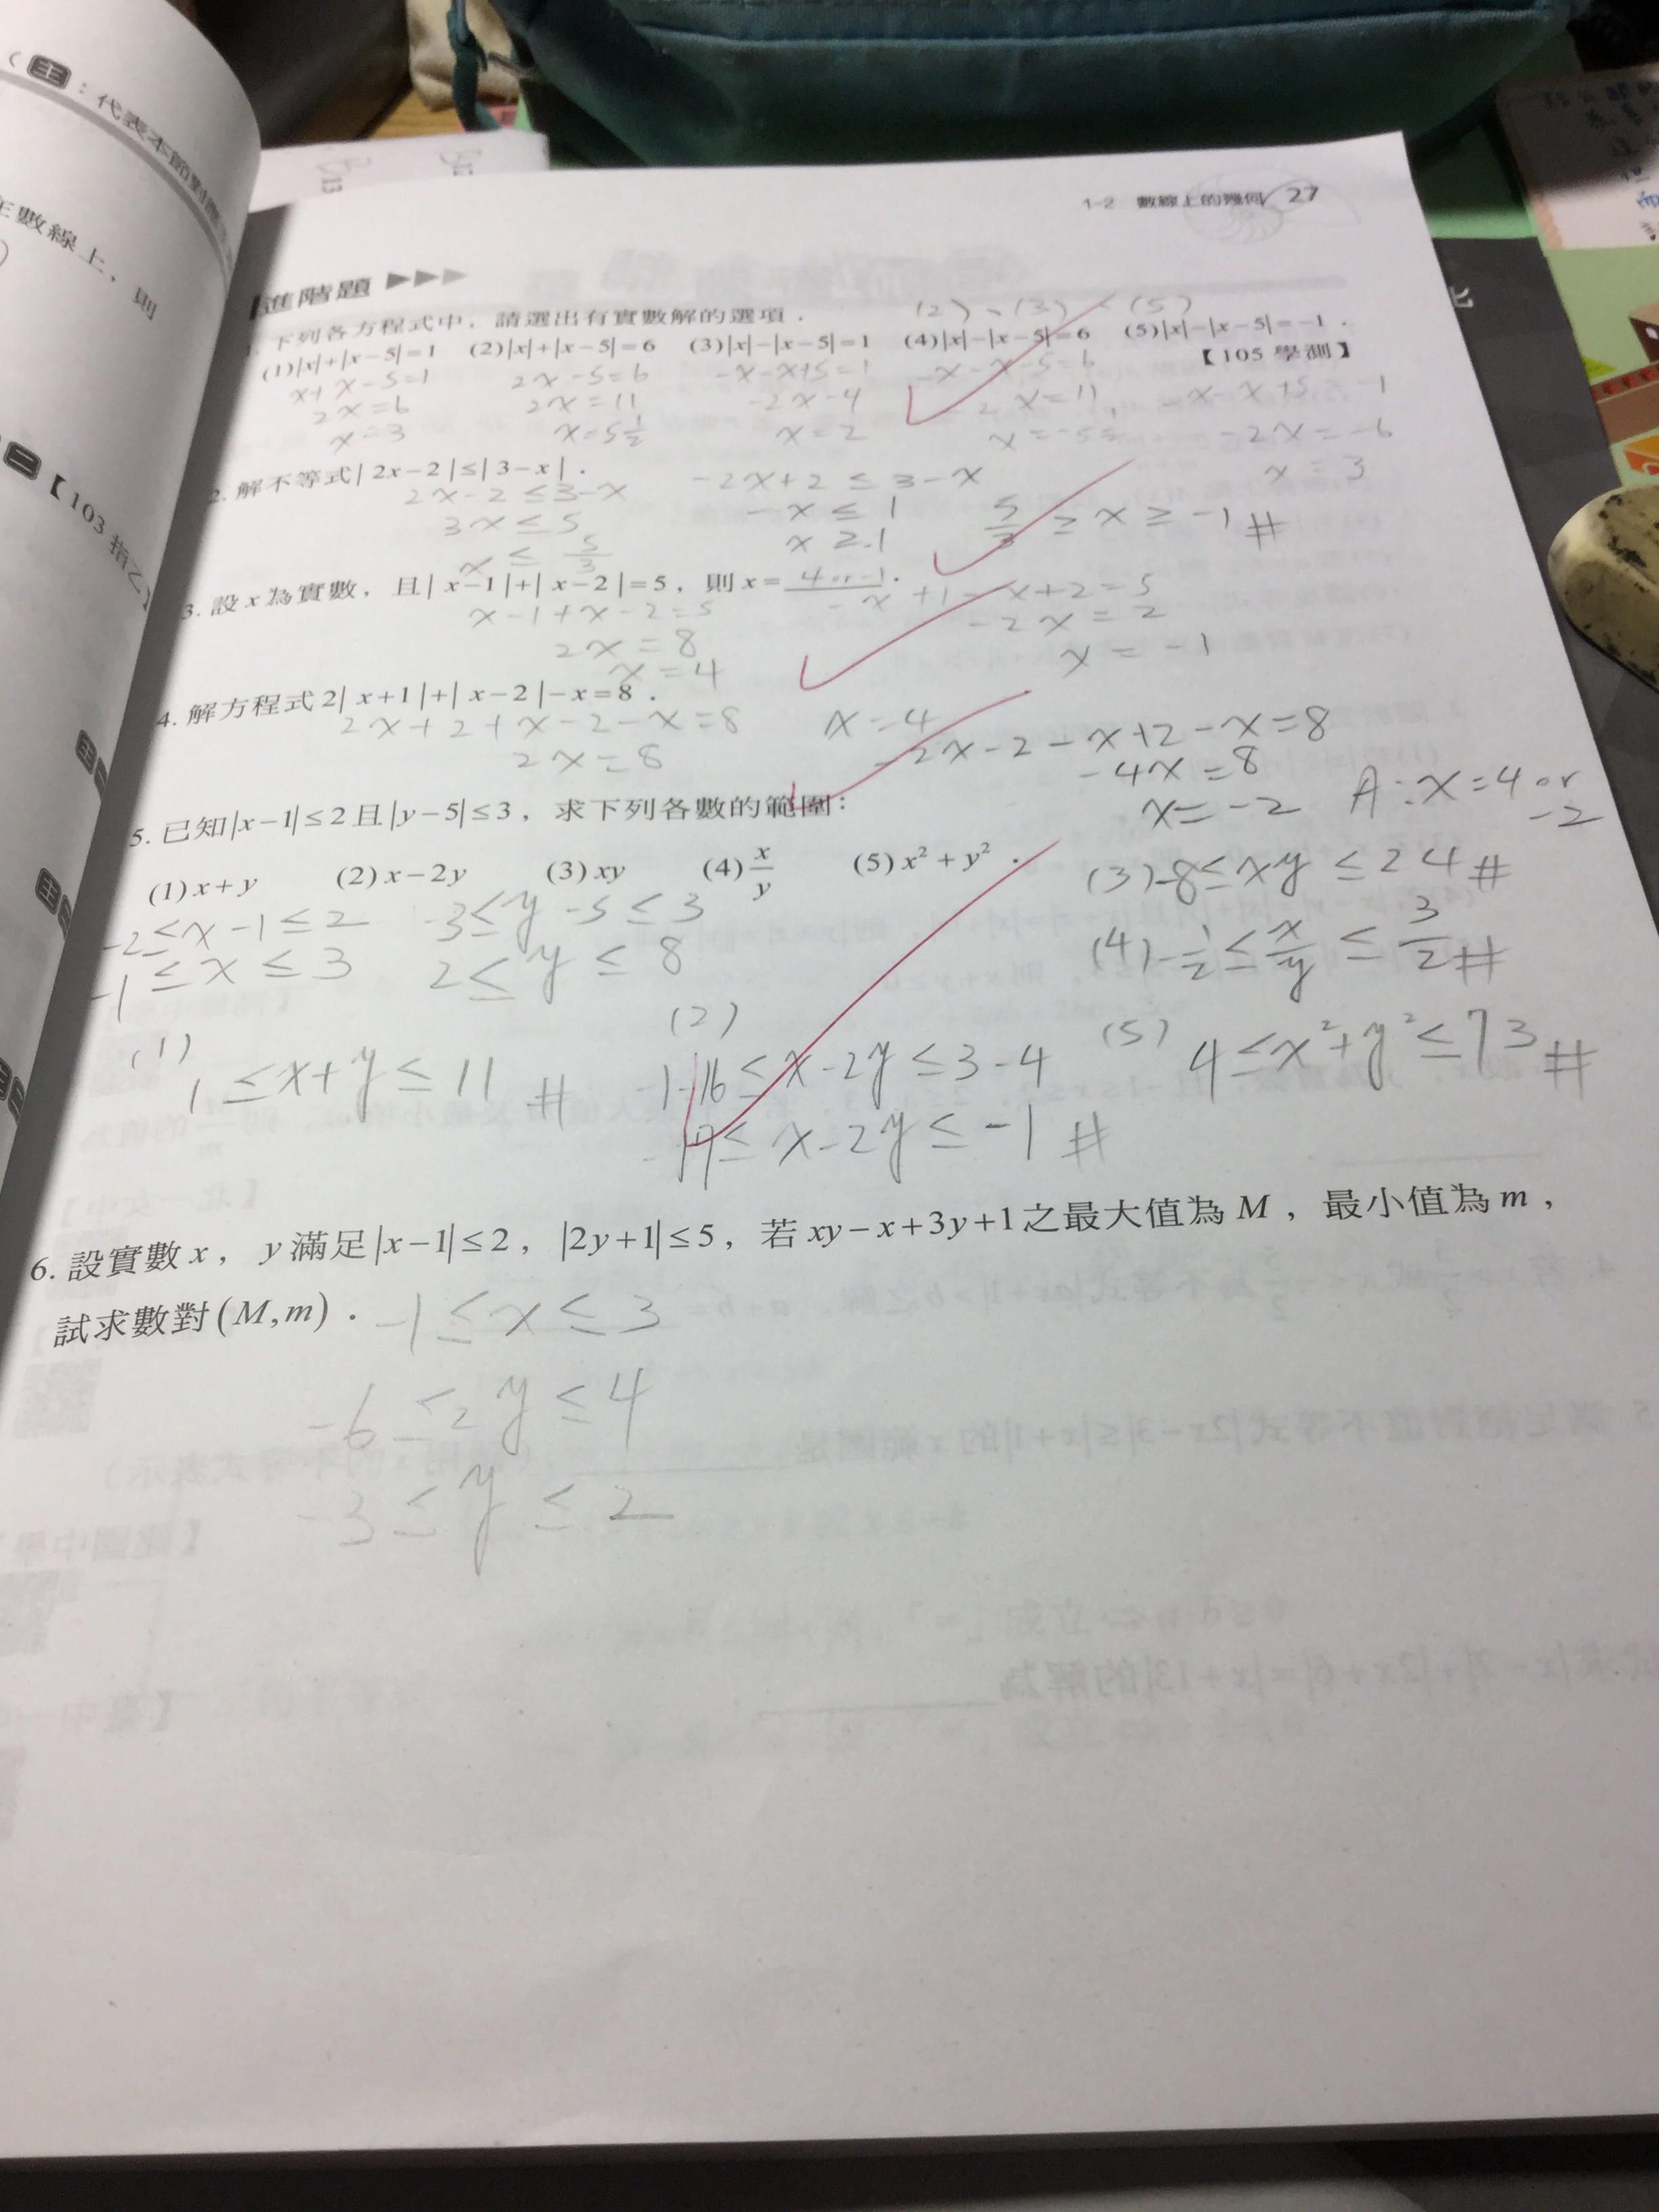 (主：代表本節對應
在數線上，則
【103 指乙】
1-2 數線上的幾何 27
進階題 ▶▶▶
下列各方程式中，請選出有實數解的選項． (2)、(3)、(5)
(1)|x|+|x-5|=1 (2)|x|+|x-5|=6 (3)|x|-|x-5|=1 (4)|x|-|x-5|=6 (5)|x|-|x-5|=-1．
【105 學測】
x+x-5=1 2x-5=6 -x-x+5=1 -x-x-5=6 x-x+5=-1
2x=6 2x=11 -2x-4 -2x=11 -2x=-6
x=3 x=5½ x=2 x=-5½ x=3
2. 解不等式|2x-2|≤|3-x|．
2x-2≤3-x -2x+2≤3-x
3x≤5 -x≤1 5/3≥x≥-1#
x≤5/3 x≥-1
3. 設x為實數，且|x-1|+|x-2|=5，則x=4or-1．
x-1+x-2=5 -x+1-x+2=5
2x=8 -2x=2
x=4 x=-1
4. 解方程式2|x+1|+|x-2|-x=8．
2x+2+x-2-x=8 x=4 -2x-2-x+2-x=8
2x=8 -4x=8
x=-2 A:x=4 or -2
5. 已知|x-1|≤2且|y-5|≤3，求下列各數的範圍：
(1)x+y (2)x-2y (3)xy (4)x/y (5)x²+y²．
(3)-8≤xy≤24#
-2≤x-1≤2 -3≤y-5≤3
-1≤x≤3 2≤y≤8 (4)-1/2≤x/y≤3/2#
(1) 1≤x+y≤11 #
(2) -1-16≤x-2y≤3-4
-17≤x-2y≤-1 #
(5) 4≤x²+y²≤73#
6. 設實數x，y滿足|x-1|≤2，|2y+1|≤5，若xy-x+3y+1之最大值為M，最小值為m，
試求數對(M,m)． -1≤x≤3
-6≤2y≤4
-3≤y≤2